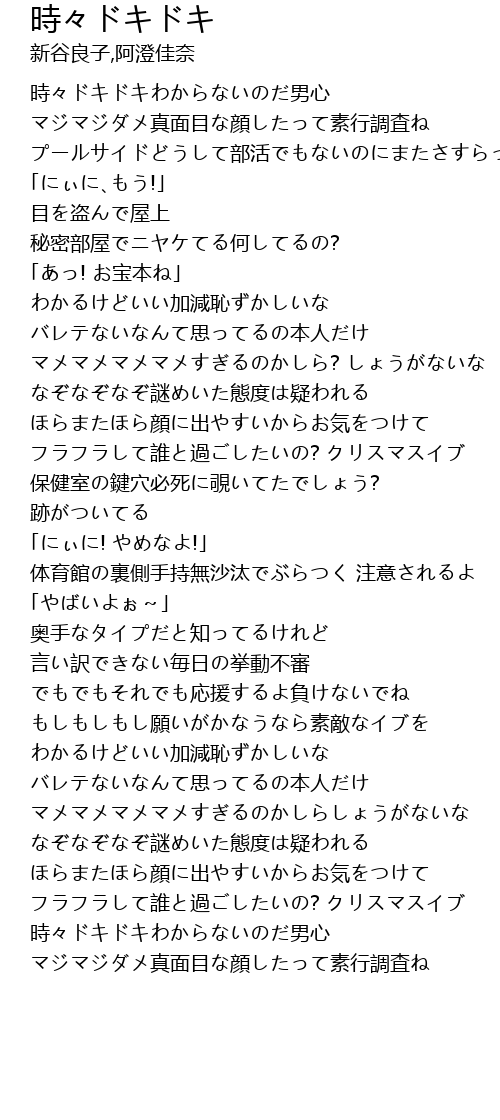 時々ドキドキ
新谷良子,阿澄佳奈
時々ドキドキわからないのだ男心
マジマジダメ真面目な顔したって素行調査ね
プールサイドどうして部活でもないのにまたさすらっ
「にぃに、もう!」
目を盗んで屋上
秘密部屋でニヤケてる何してるの?
「あっ! お宝本ね」
わかるけどいい加減恥ずかしいな
バレテないなんて思ってるの本人だけ
マメマメマメマメすぎるのかしら? しょうがないな
なぞなぞなぞ謎めいた態度は疑われる
ほらまたほら顔に出やすいからお気をつけて
フラフラして誰と過ごしたいの? クリスマスイブ
保健室の鍵穴必死に覗いてたでしょう?
跡がついてる
「にぃに! やめなよ!」
体育館の裏側手持無沙汰でぶらつく 注意されるよ
「やばいよぉ～」
奥手なタイプだと知ってるけれど
言い訳できない毎日の挙動不審
でもでもそれでも応援するよ負けないでね
もしもしもし願いがかなうなら素敵なイブを
わかるけどいい加減恥ずかしいな
バレテないなんて思ってるの本人だけ
マメマメマメマメすぎるのかしらしょうがないな
なぞなぞなぞ謎めいた態度は疑われる
ほらまたほら顔に出やすいからお気をつけて
フラフラして誰と過ごしたいの? クリスマスイブ
時々ドキドキわからないのだ男心
マジマジダメ真面目な顔したって素行調査ね